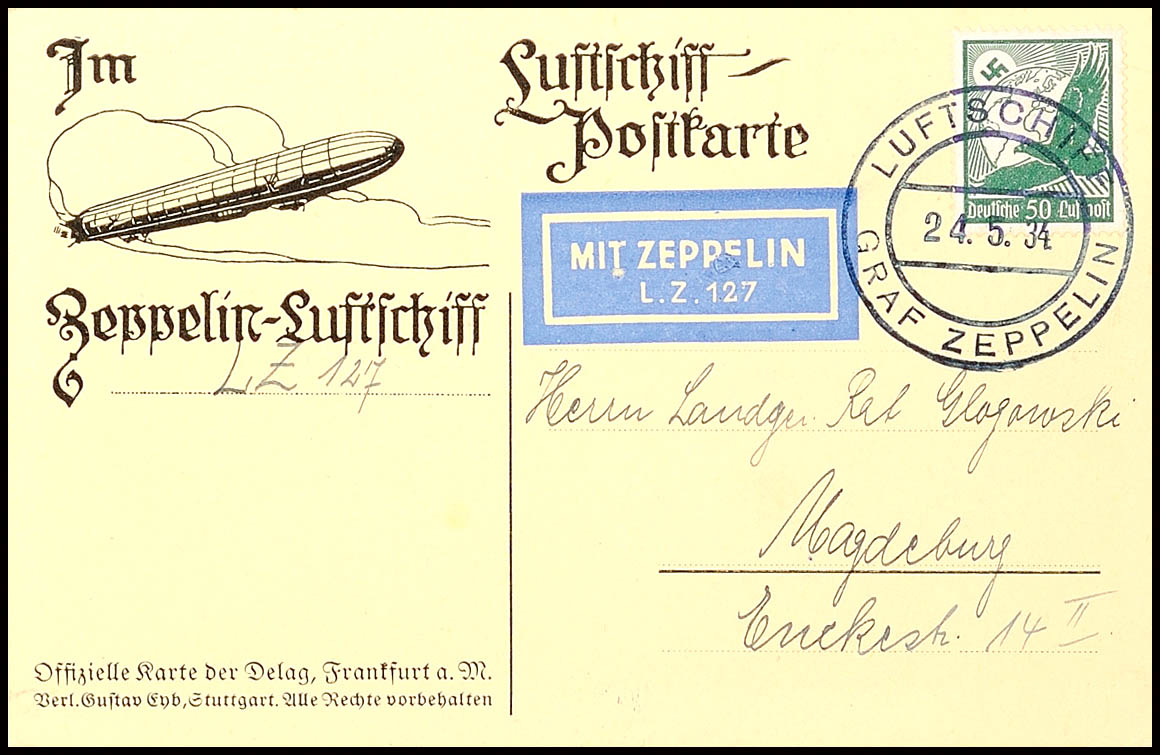 Im
Zeppelin-Luftschiff
LZ 127
Offizielle Karte der Delag, Frankfurt a. M.
Verl. Gustav Eyb, Stuttgart. Alle Rechte vorbehalten
Luftschiff-
Postkarte
MIT ZEPPELIN
L.Z.127
Deutsche 50 Luftpost
LUFTSCHIFF
24.5.34
GRAF ZEPPELIN
Herrn Landger. Rat Glogowski
Magdeburg
Enckestr. 14 II